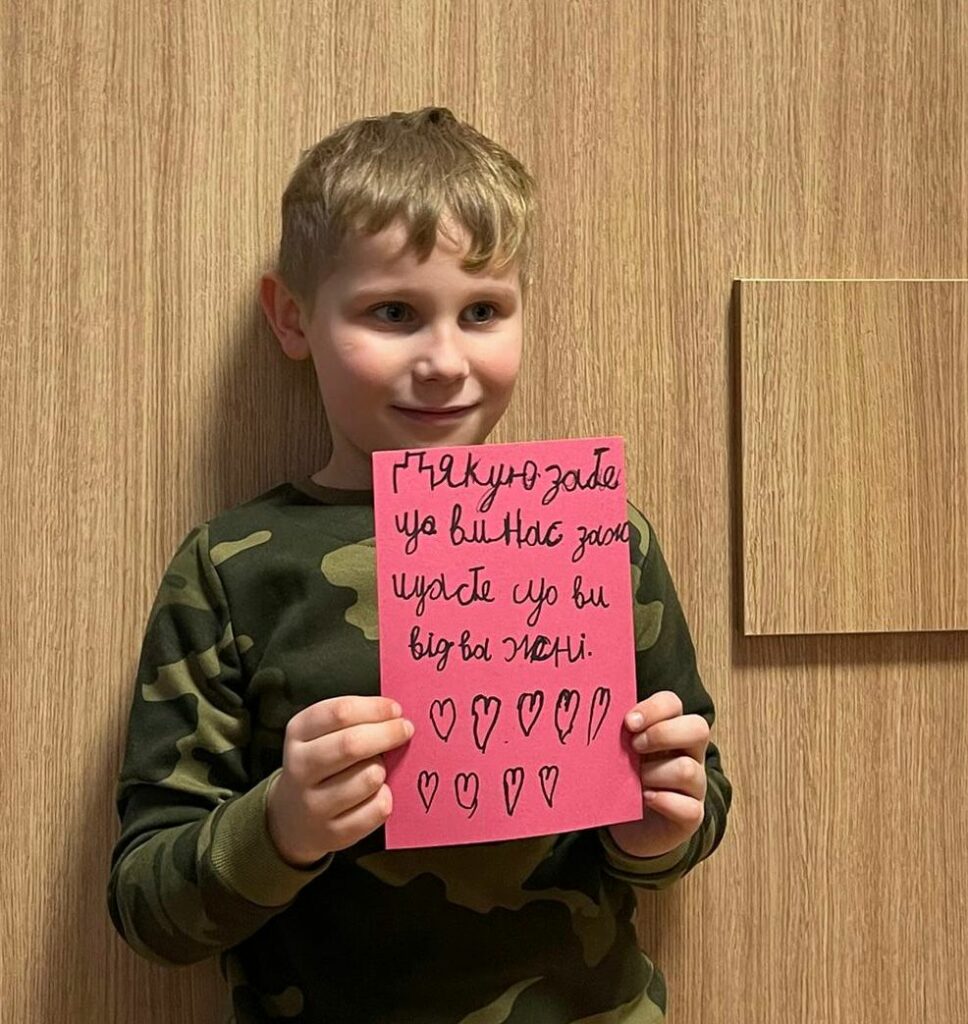 Дякую забе
що ви нас захо
щаєте що ви
відважні.